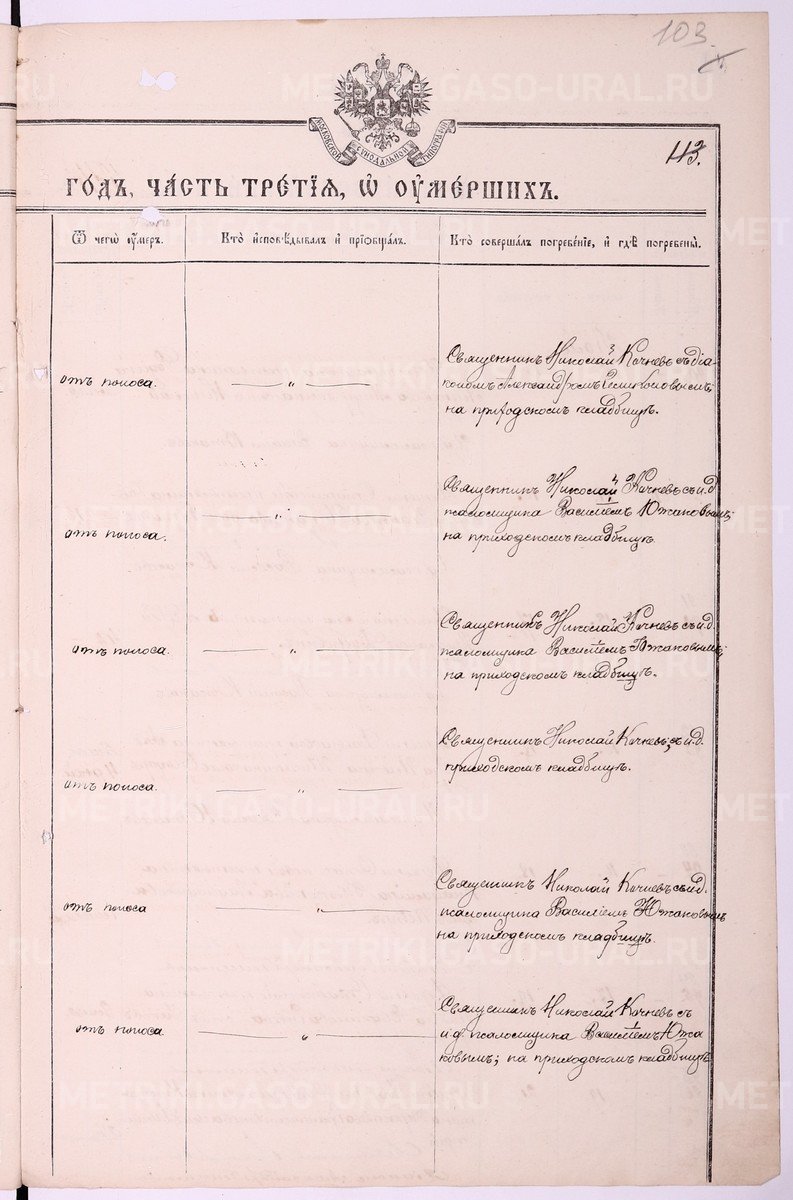 103
113.
МОСКОВСКОЙ СѴНОДАЛЬНОЙ ТИПОГРАФІИ
ГО́ДЪ, ЧА́СТЬ ТРЕ́ТЇѦ, Ѡ҆ ОУ҆МЕ́РШИХЪ.
Ѿ чегѡ̀ оу҆́меръ.
Кто̀ и҆сповѣ́дывалъ и҆ прїѡбща́лъ.
Кто̀ соверша́лъ погребе́нїе, и҆ гдѣ̀ погребены̀.
отъ поноса.
— „ —
Священникъ Николай Кочневъ съ діа-
кономъ Александромъ
на приходскомъ кладбищѣ.
отъ поноса.
— „ —
Священникъ Николай Кочневъ съ и.д.
псаломщика Василіемъ Южаковымъ;
на приходскомъ кладбищѣ.
отъ поноса.
— „ —
Священникъ Николай Кочневъ съ и.д.
псаломщика Василіемъ Южаковымъ;
на приходскомъ кладбищѣ.
отъ поноса.
— „ —
Священникъ Николай Кочневъ, съ и.д.
приходскомъ кладбищѣ.
отъ поноса
— „ —
Священникъ Николай Кочневъ съ и.д.
псаломщика Василіемъ Южаковымъ
на приходскомъ кладбищѣ.
отъ поноса
— „ —
Священникъ Николай Кочневъ съ
и.д. псаломщика Василіемъ Южа
ковымъ; на приходскомъ кладбищѣ
METRIKI.GASO-URAL.RU